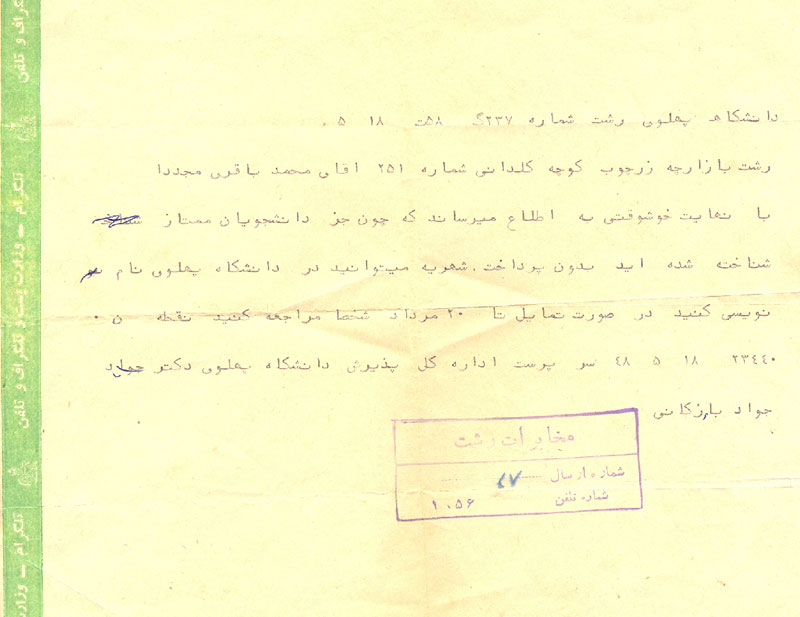 دانشگاه پهلوی رشت شماره ۲۳۷گ ۵۸ت ۱۸ ۵ ۰
رشت بازارچه زرجوب کوچه کلدانی شماره ۲۵۱ اقای محمد باقری مجددا
با نهایت خوشوقتی به اطلاع میرساند که چون جز دانشجویان ممتاز
شناخته شده اید بدون پرداخت شهریه میتوانید در دانشگاه پهلوی نام
نویسی کنید در صورت تمایل تا ۲۰ مرداد شخصا مراجعه کنید نقطه ن ۰
۲۳٤٤۰ ۱۸ ۵ ٤۸ سر پرست اداره کل پذیرش دانشگاه پهلوی دکتر
جواد بارزکانی
مخابرات رشت
شماره ارسال ۴۷
شماره تلفن ۱۰۵۶
تلگراف و تلفن
تلگرام — وزارت پست و تلگراف و تلفن
تلگرام — وزارت